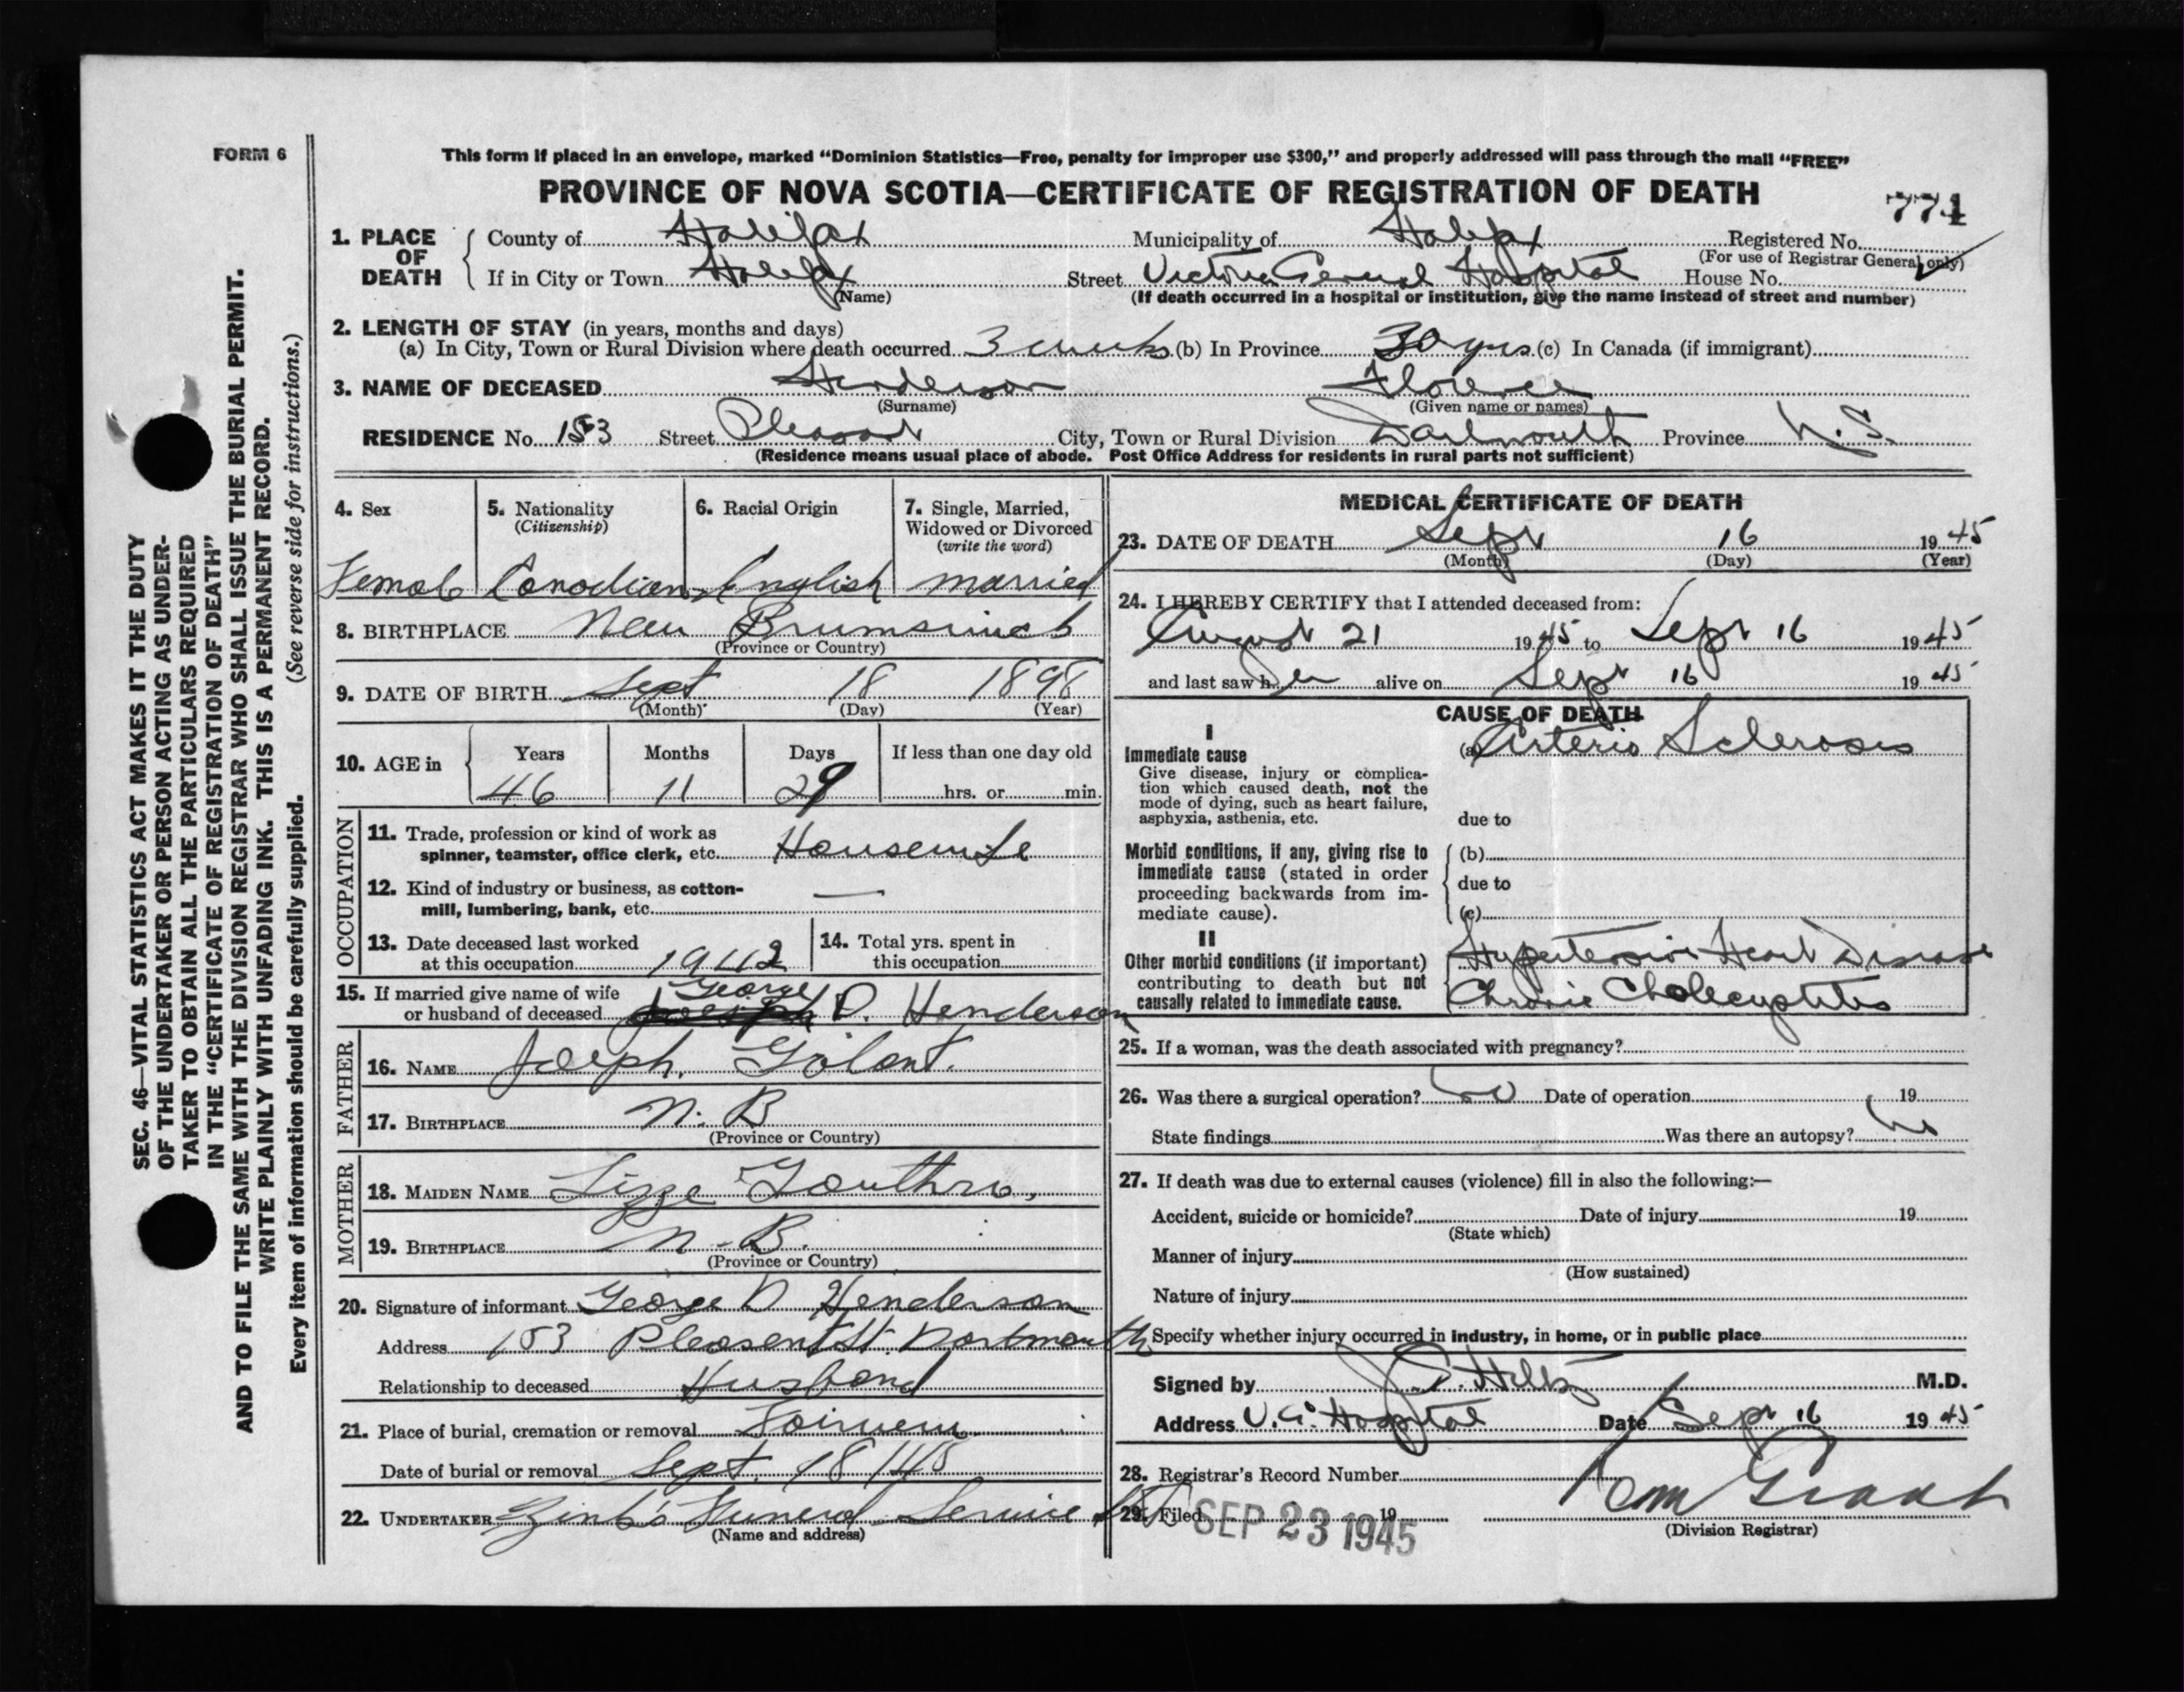 FORM 6
This form if placed in an envelope, marked "Dominion Statistics—Free, penalty for improper use $300," and properly addressed will pass through the mail "FREE"
PROVINCE OF NOVA SCOTIA—CERTIFICATE OF REGISTRATION OF DEATH
774
1. PLACE OF DEATH
County of Halifax Municipality of Halifax Registered No.
(For use of Registrar General only)
If in City or Town Halifax Street Victoria General Hospital House No.
(Name) (If death occurred in a hospital or institution, give the name instead of street and number)
2. LENGTH OF STAY (in years, months and days)
(a) In City, Town or Rural Division where death occurred 3 weeks (b) In Province 30 yrs. (c) In Canada (if immigrant)
3. NAME OF DECEASED Henderson Florence
(Surname) (Given name or names)
RESIDENCE No. 153 Street Pleasant City, Town or Rural Division Dartmouth Province N.S.
(Residence means usual place of abode. Post Office Address for residents in rural parts not sufficient)
4. Sex 5. Nationality (Citizenship) 6. Racial Origin 7. Single, Married, Widowed or Divorced (write the word)
Female Canadian English Married
8. BIRTHPLACE New Brunswick
(Province or Country)
9. DATE OF BIRTH Sept 18 1898
(Month) (Day) (Year)
10. AGE in Years Months Days If less than one day old
46 11 29 hrs. or min.
OCCUPATION
11. Trade, profession or kind of work as
spinner, teamster, office clerk, etc. Housewife
12. Kind of industry or business, as cotton-
mill, lumbering, bank, etc. —
13. Date deceased last worked
at this occupation 1942
14. Total yrs. spent in
this occupation
15. If married give name of wife
or husband of deceased George D. Henderson
FATHER
16. NAME Joseph.
17. BIRTHPLACE N. B
(Province or Country)
MOTHER
18. MAIDEN NAME Lizze Gouthro,
19. BIRTHPLACE N. B.
(Province or Country)
20. Signature of informant George D Henderson
Address 153 Pleasent St. Dartmouth
Relationship to deceased Husband
21. Place of burial, cremation or removal
Date of burial or removal Sept. 18
22. UNDERTAKER Zink's Funeral Service Ltd
(Name and address)
MEDICAL CERTIFICATE OF DEATH
23. DATE OF DEATH Sept 16 1945
(Month) (Day) (Year)
24. I HEREBY CERTIFY that I attended deceased from:
August 21 1945 to Sept 16 1945
and last saw her alive on Sept 16 1945
CAUSE OF DEATH
I
Immediate cause (a) Arterio Sclerosis
Give disease, injury or complica-
tion which caused death, not the
mode of dying, such as heart failure,
asphyxia, asthenia, etc. due to
Morbid conditions, if any, giving rise to (b)
immediate cause (stated in order
proceeding backwards from im- due to
mediate cause). (c)
II
Other morbid conditions (if important) Hypertensive Heart Disease
contributing to death but not
causally related to immediate cause. Chronic Cholecystitis
25. If a woman, was the death associated with pregnancy?
26. Was there a surgical operation? no Date of operation 19
State findings Was there an autopsy? no
27. If death was due to external causes (violence) fill in also the following:—
Accident, suicide or homicide? Date of injury 19
(State which)
Manner of injury
(How sustained)
Nature of injury
Specify whether injury occurred in industry, in home, or in public place
Signed by M.D.
Address V.G. Hospital Date Sept 16 1945
28. Registrar's Record Number
29. Filed SEP 23 1945 19
(Division Registrar)
SEC. 46—VITAL STATISTICS ACT MAKES IT THE DUTY
OF THE UNDERTAKER OR PERSON ACTING AS UNDER-
TAKER TO OBTAIN ALL THE PARTICULARS REQUIRED
IN THE "CERTIFICATE OF REGISTRATION OF DEATH"
AND TO FILE THE SAME WITH THE DIVISION REGISTRAR WHO SHALL ISSUE THE BURIAL PERMIT.
WRITE PLAINLY WITH UNFADING INK. THIS IS A PERMANENT RECORD.
Every item of information should be carefully supplied. (See reverse side for instructions.)